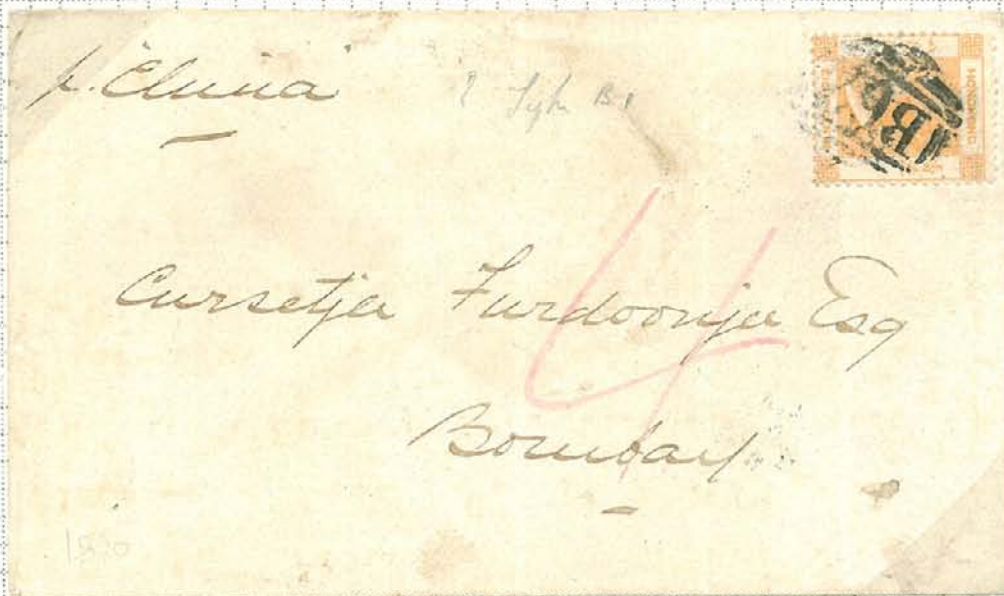 p. "China"
HONG KONG
B
4
Cursetja Furdoonja Esq
Bombay